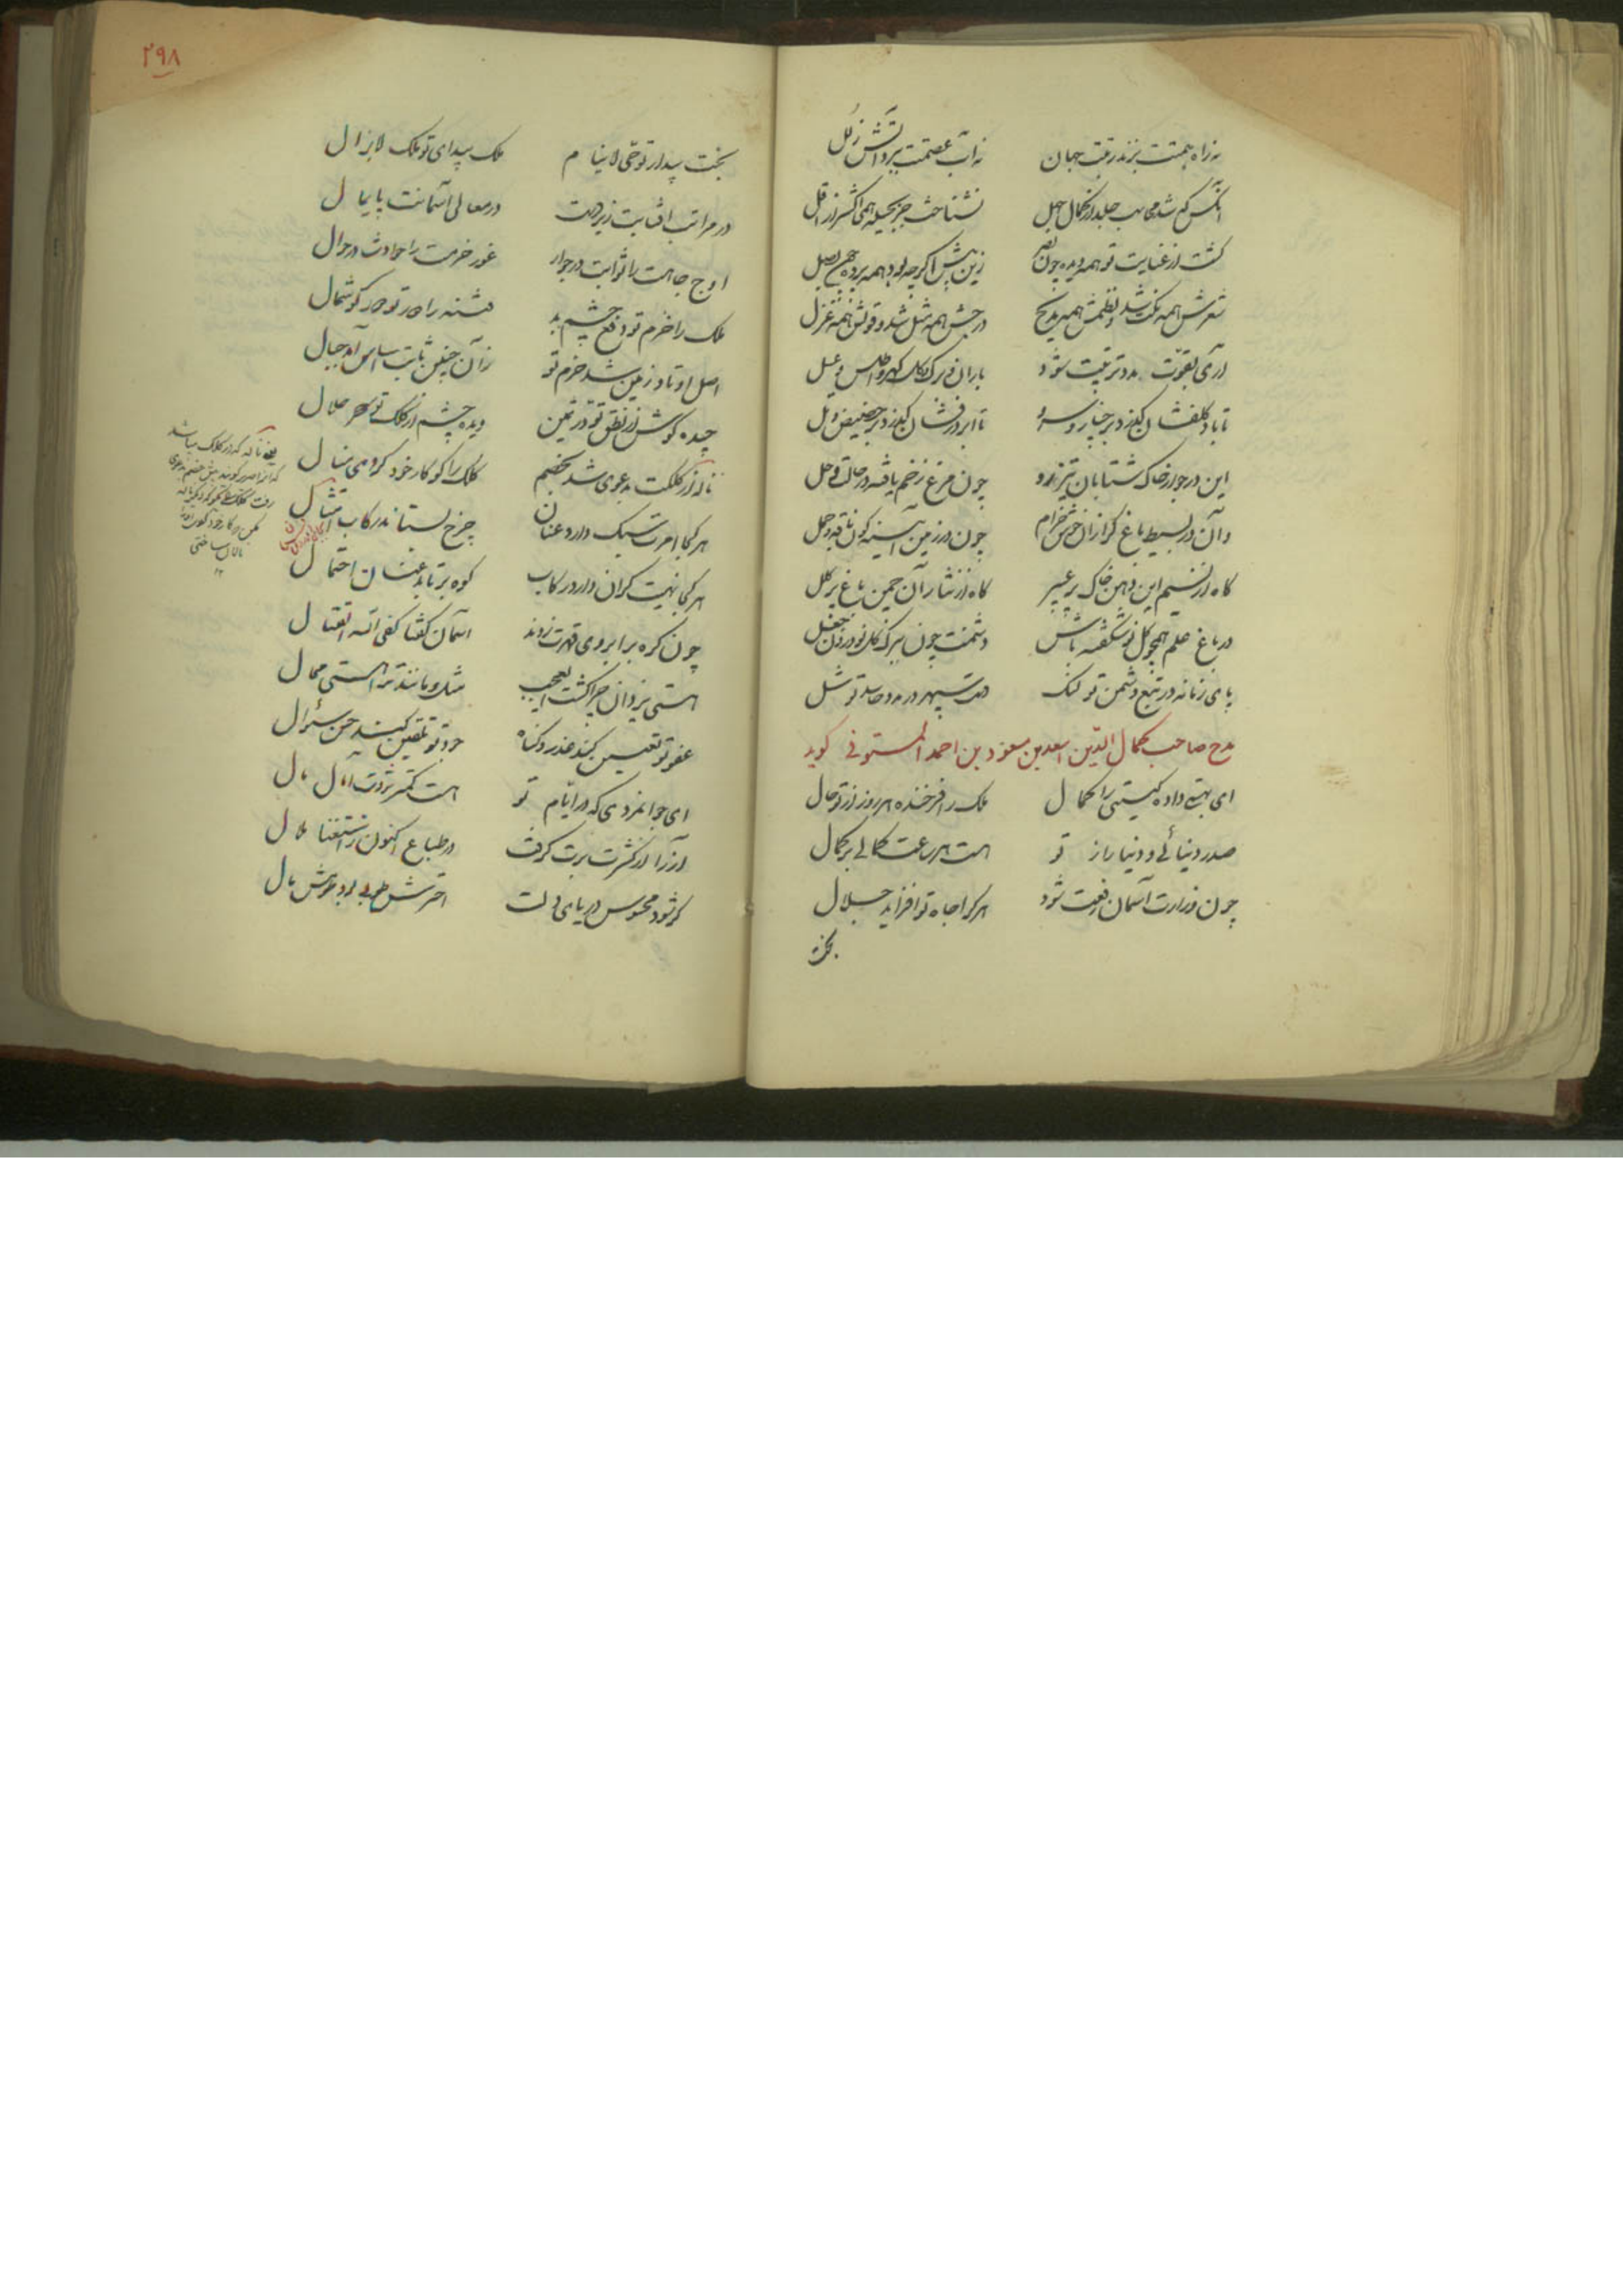 نه راه همتت بزند رتبت جهان نه آب عصمتت ببرد آتش زلل
آنکس که شد مجانب جلد از کمال جهل نشناخت جز بحیله همی اکثر از اقل
گشت از عنایت تو همه دیده چون بصر زین پیش اگرچه بود همه پرده چون بصل
شعرش همه نکت شد و نظمش همه مدیح در جنبش همه مثل شد و قولش همه غزل
آری بقوت مدد تربیت شود باران و برک و گل گهر و اطلس و عسل
تا باد گلفشان گذرد بر چنار و سرو تا ابر درفشان گذرد بر حضیض و تل
این در جوار خاک شتابان تیزرو چون مرغ زخم یافته در حالت وجل
وان در بسیط باغ گرازان خوش خرام چون در زمین آینه گون ناقه و جمل
گاه از نسیم این دهن خاک پر عبیر گاه از نثار آن چمن باغ پر کلل
در باغ حلم همچو گل نوشکفته باش دشمنت چون بنزد گل نو درون جعل
پای زمانه در تتبع دشمن تو لنگ دست سپهر در مدد حاسد تو شل
مدح صاحب کمال الدین اسعد بن مسعود بن احمد المستوفی گوید
ای بهمت داده گیتی را کمال ملک را فرخنده هر روز از تو حال
صدر دنیائی و دنیا را ز تو هست هر ساعت کمالی بر کمال
چون وزارت آسمان رفعت شود هرکرا جاه تو افزاید جلال
بخت
۲۹۸
بخت بیدار تو حی لاینام ملک پیدای تو ملک لایزال
در مراتب آفتابت زیردست در معالی آسمانت پایمال
اوج جاهت را ثوابت در جوار غور حزمت را حوادث در جوال
ملک را حزم تو دفع چشم بد فتنه را دور تو دور گوشمال
اصل اوتاد زمین شد حزم تو زان چنین ثابت اساس آمد جبال
چیده گوش از نطق تو در ثمین دیده چشم از کلک تو سحر حلال
ناله از کلکت بدعوی شد بخصم کلک را گو کار خود کردی منال
هر کجا امرت سبک دارد عنان چرخ نستاند رکاب امتثال
هر کجا نهیت گران دارد رکاب کوه برتابد عنان احتمال
چون گره بر ابروی قهرت زدند آسمان گفتا کفی الله القتال
هستی یزدان چرا گشت ای عجب مثل و مانند ترا هستی محال
عفو تو تعیین کند عذر و گناه جود تو تلقین کند حسن سؤال
ای جوانمردی که در ایام تو هست کمتر ثروت آمال مال
آز را از کثرت برت گرفت در طباع اکنون ز استغنا ملال
گر شود محسوس دریای دلت اخترش طوبی بود عرش بال